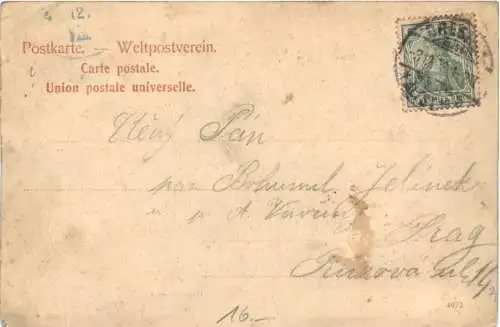 12.
Postkarte. — Weltpostverein.
Carte postale.
Union postale universelle.
Ctěný Pán
pan Bohumil Jelínek
u p A. Vavřín
Prag
ul
16.-
4072